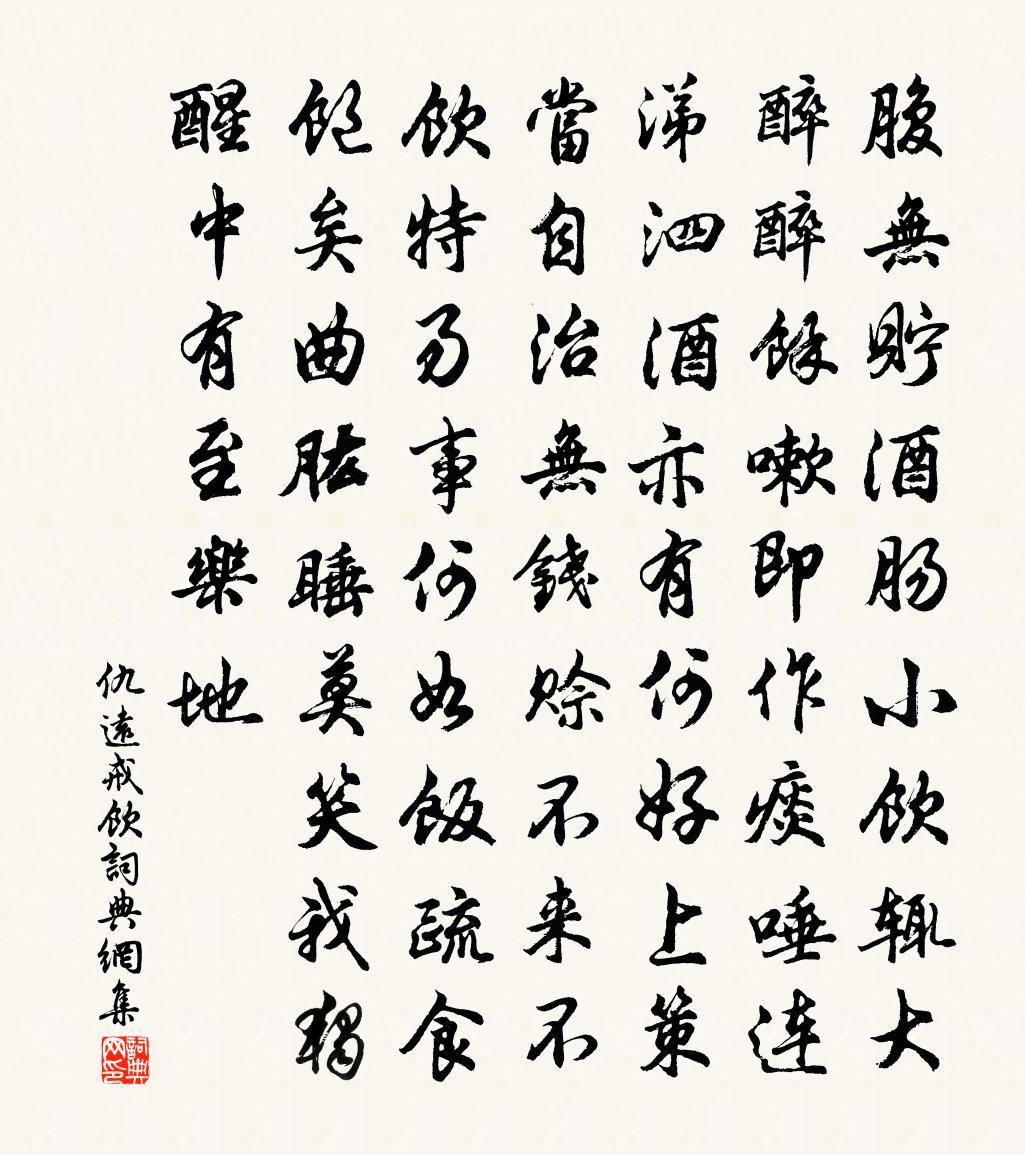 腹無貯酒肠小飲輒大
醉醉餘嗽即作痰唾連
涕泗酒亦有何好上策
當自治無錢賒不来不
飲特易事何如飯疏食
飽矣曲肱睡莫笑我獨
醒中有至樂地
仇遠戒飲詞典網集
詞典网印